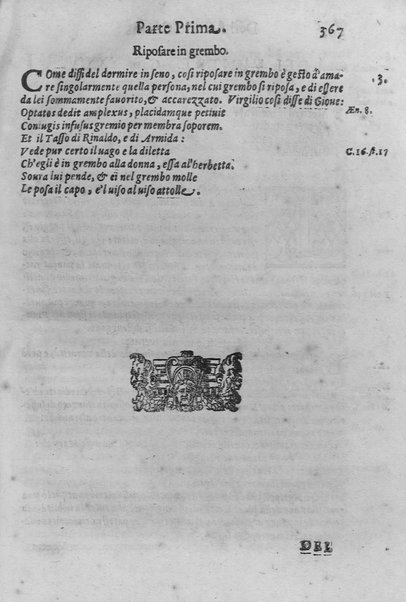 Parte Prima. 367
Riposare in grembo.
COme dissi del dormire in seno, così riposare in grembo è gesto d'ama- 3.
re singolarmente quella persona, nel cui grembo si riposa, e di essere
da lei sommamente fauorito, & accarezzato. Virgilio così disse di Gioue:
Optatos dedit amplexus, placidamque petiuit Æn. 8.
Coniugis infusus gremio per membra soporem.
Et il Tasso di Rinaldo, e di Armida:
Vede pur certo il uago e la diletta C. 16. st. 17
Ch'egli è in grembo alla donna, essa all'herbetta.
Soura lui pende, & ei nel grembo molle
Le posa il capo, e'l uiso al uiso attolle.
DEL